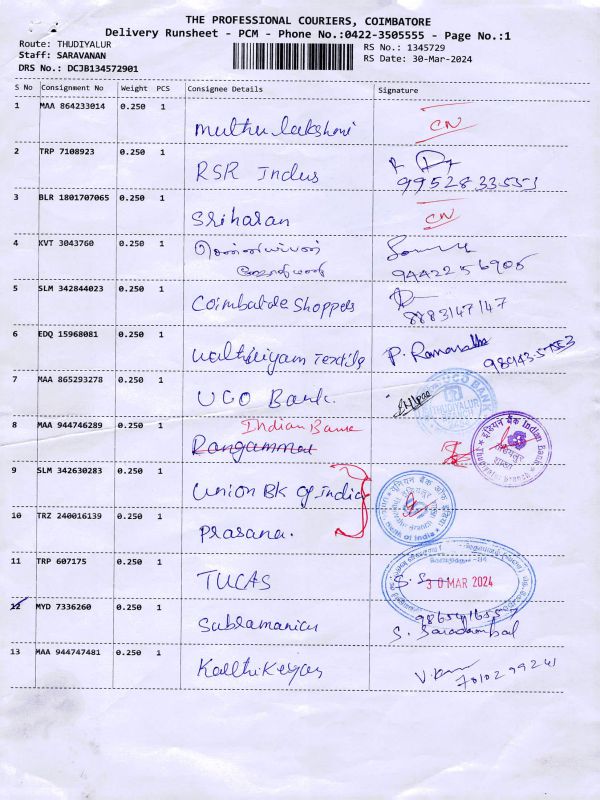 THE PROFESSIONAL COURIERS, COIMBATORE
Delivery Runsheet - PCM - Phone No.:0422-3505555 - Page No.:1
Route: THUDIYALUR
Staff: SARAVANAN
DRS No.: DCJB134572901
RS No.: 1345729
RS Date: 30-Mar-2024
S No Consignment No Weight PCS Consignee Details Signature
1 MAA 864233014 0.250 1 Muthu lakshmi CN
2 TRP 7108923 0.250 1 RSR Indus
9952833553
3 BLR 1801707065 0.250 1 Sriharan CN
4 KVT 3043760 0.250 1
9442256905
5 SLM 342844023 0.250 1 Coimbatore Shoppers
8883147147
6 EDQ 15968081 0.250 1 Textile P.
7 MAA 865293278 0.250 1 UCO Bank. UCO BANK
THUDIYALUR
8 MAA 944746289 0.250 1 Indian Bank
Rangammal
इंडियन बैंक Indian Bank
9 SLM 342630283 0.250 1 Union Bk of India
यूनियन बैंक ऑफ
10 TRZ 240016139 0.250 1 Prasana.
11 TRP 607175 0.250 1 TUCAS
30 MAR 2024
12 MYD 7336260 0.250 1 Subramaniam
S. Saradambal
13 MAA 944747481 0.250 1 Karthikeyan
7010299241